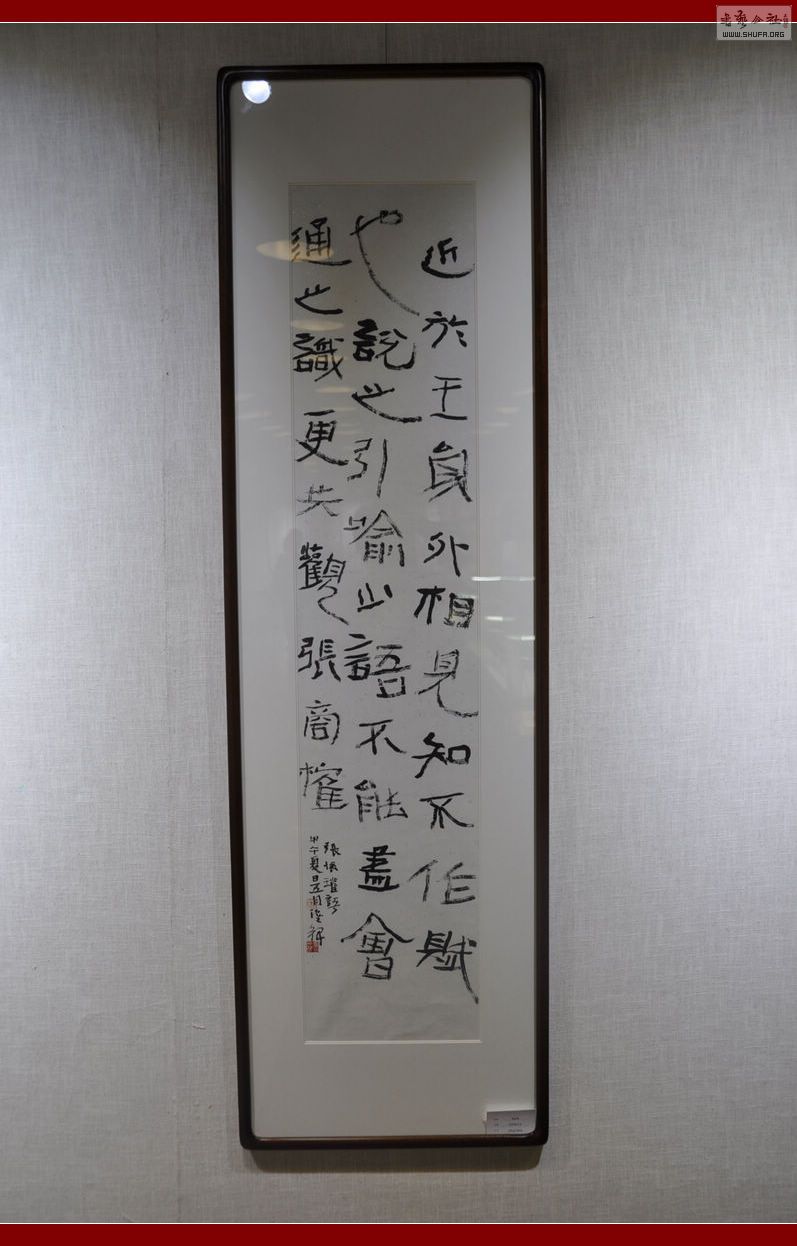 近於王員外相見知不作賦
也說之引喻少語不能盡會
通之識更共觀張商榷
張懷瓘語
甲午夏
WWW.SHUFA.ORG